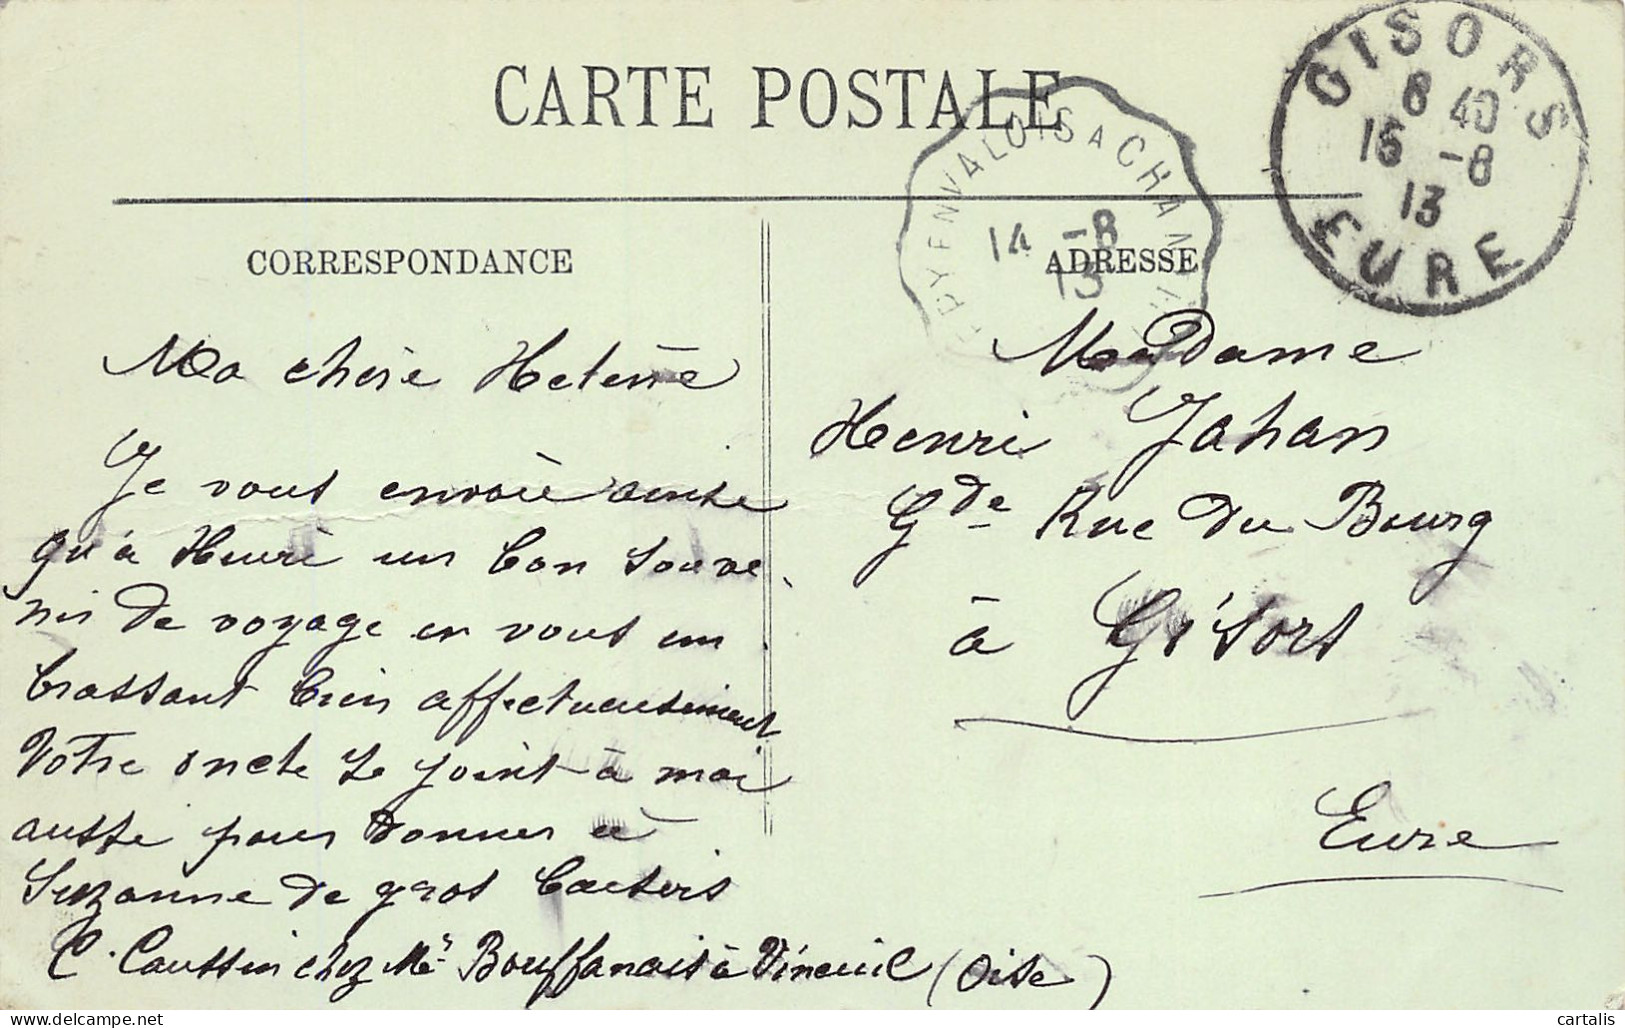 CARTE POSTALE
CORRESPONDANCE
ADRESSE
GISORS
8 40
15 -8
13
EURE
CRÉPY EN VALOIS A CHANTILLY
14 -8
13
Ma chère Helène
Je vous envoie ainsi
qu'à Henri un bon souve-
nir de voyage en vous em
brassant bien affectueusement
Votre oncle se joint à moi
aussi pour donner à
Suzanne de gros baisers
C. Caussin chez Me Bouffanais à Vineuil (Oise)
Madame
Henri Jahan
Gde Rue du Bourg
à Gisors
Eure
cartalis